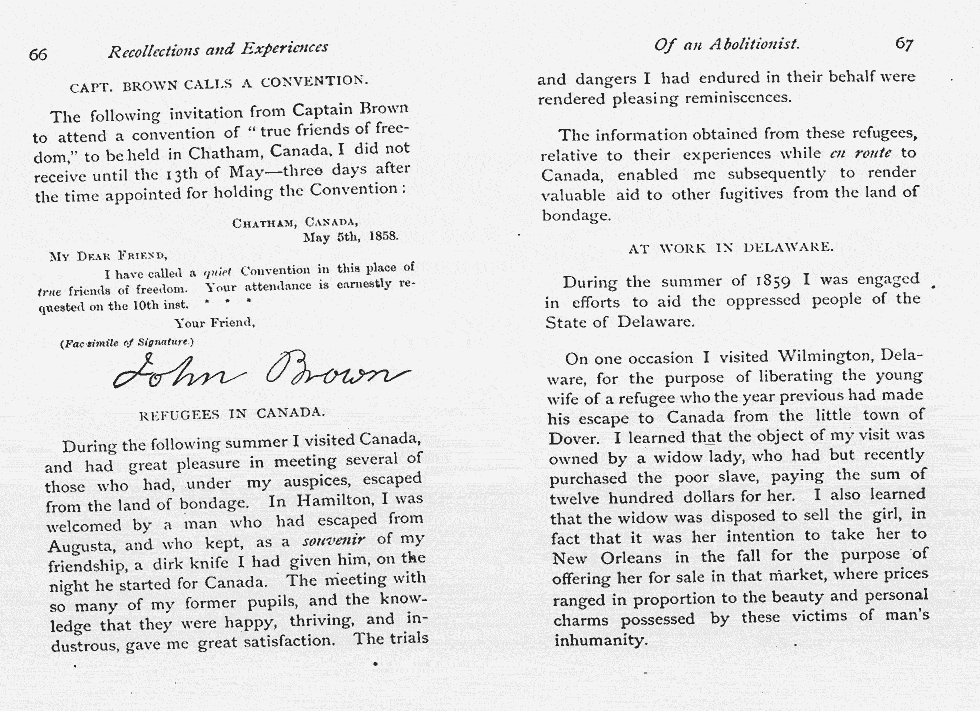 66 Recollections and Experiences
CAPT. BROWN CALLS A CONVENTION.
The following invitation from Captain Brown
to attend a convention of "true friends of free-
dom," to be held in Chatham, Canada, I did not
receive until the 13th of May—three days after
the time appointed for holding the Convention:
CHATHAM, CANADA,
May 5th, 1858.
MY DEAR FRIEND,
I have called a quiet Convention in this place of
true friends of freedom. Your attendance is earnestly re-
quested on the 10th inst. * * *
Your Friend,
(Fac-simile of Signature.)
John Brown
REFUGEES IN CANADA.
During the following summer I visited Canada,
and had great pleasure in meeting several of
those who had, under my auspices, escaped
from the land of bondage. In Hamilton, I was
welcomed by a man who had escaped from
Augusta, and who kept, as a souvenir of my
friendship, a dirk knife I had given him, on the
night he started for Canada. The meeting with
so many of my former pupils, and the know-
ledge that they were happy, thriving, and in-
dustrous, gave me great satisfaction. The trials
Of an Abolitionist. 67
and dangers I had endured in their behalf were
rendered pleasing reminiscences.
The information obtained from these refugees,
relative to their experiences while en route to
Canada, enabled me subsequently to render
valuable aid to other fugitives from the land of
bondage.
AT WORK IN DELAWARE.
During the summer of 1859 I was engaged
in efforts to aid the oppressed people of the
State of Delaware.
On one occasion I visited Wilmington, Dela-
ware, for the purpose of liberating the young
wife of a refugee who the year previous had made
his escape to Canada from the little town of
Dover. I learned that the object of my visit was
owned by a widow lady, who had but recently
purchased the poor slave, paying the sum of
twelve hundred dollars for her. I also learned
that the widow was disposed to sell the girl, in
fact that it was her intention to take her to
New Orleans in the fall for the purpose of
offering her for sale in that market, where prices
ranged in proportion to the beauty and personal
charms possessed by these victims of man's
inhumanity.